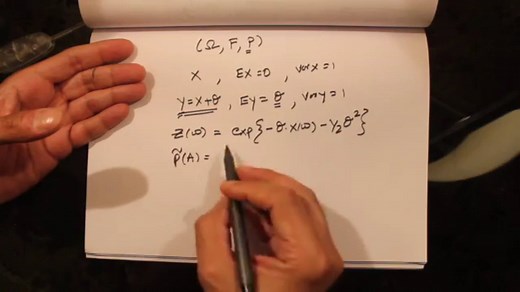 (Ω, F, P)
X , EX=0 , var X = 1
Y = X+θ , EY = θ , var Y = 1
Z(ω) = exp{-θ·X(ω) - 1/2 θ²}
P̃(A) =